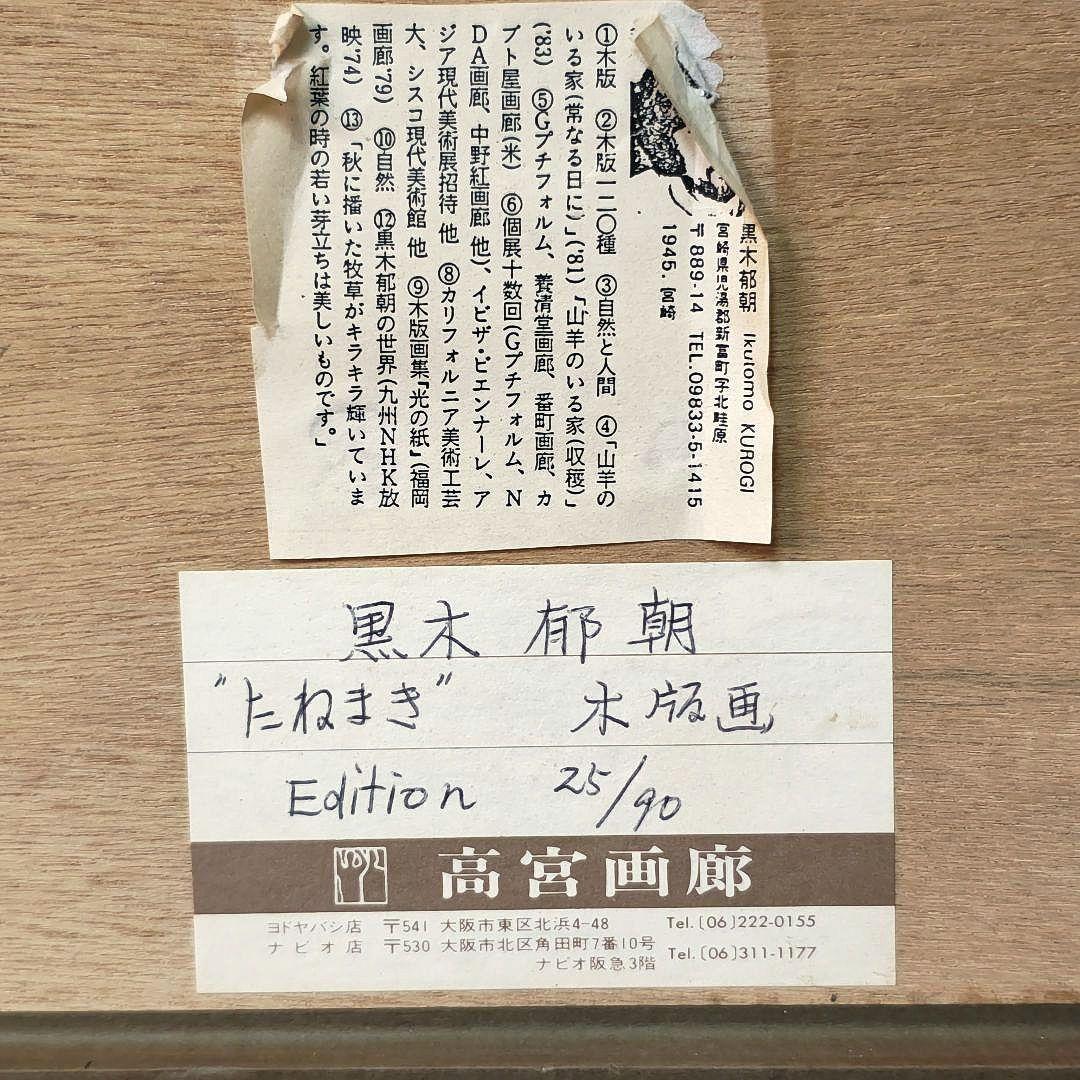 黒木郁朝 Ikutomo KUROGI
宮崎県児湯郡新富町字北畦原
〒889-14 TEL.09833-5-1415
1945.宮崎
①木版 ②木版一二〇種 ③自然と人間 ④「山羊の
いる家(常なる日に)」('81)「山羊のいる家(収穫)」
('83) ⑤Gプチフォルム、養清堂画廊、番町画廊、カ
プト屋画廊(米) ⑥個展十数回(Gプチフォルム、N
DA画廊、中野紅画廊 他)、イビザ・ビエンナーレ、ア
ジア現代美術展招待 他 ⑧カリフォルニア美術工芸
大、シスコ現代美術館 他 ⑨木版画集『光の紙』(福岡
画廊'79) ⑩自然 ⑫黒木郁朝の世界(九州NHK放
映'74) ⑬「秋に播いた牧草がキラキラ輝いていま
す。紅葉の時の若い芽立ちは美しいものです。」
黒木 郁朝
"たねまき" 木版画
Edition 25/90
高宮画廊
ヨドヤバシ店 〒541 大阪市東区北浜4-48 Tel.(06)222-0155
ナビオ店 〒530 大阪市北区角田町7番10号
ナビオ阪急3階 Tel.(06)311-1177